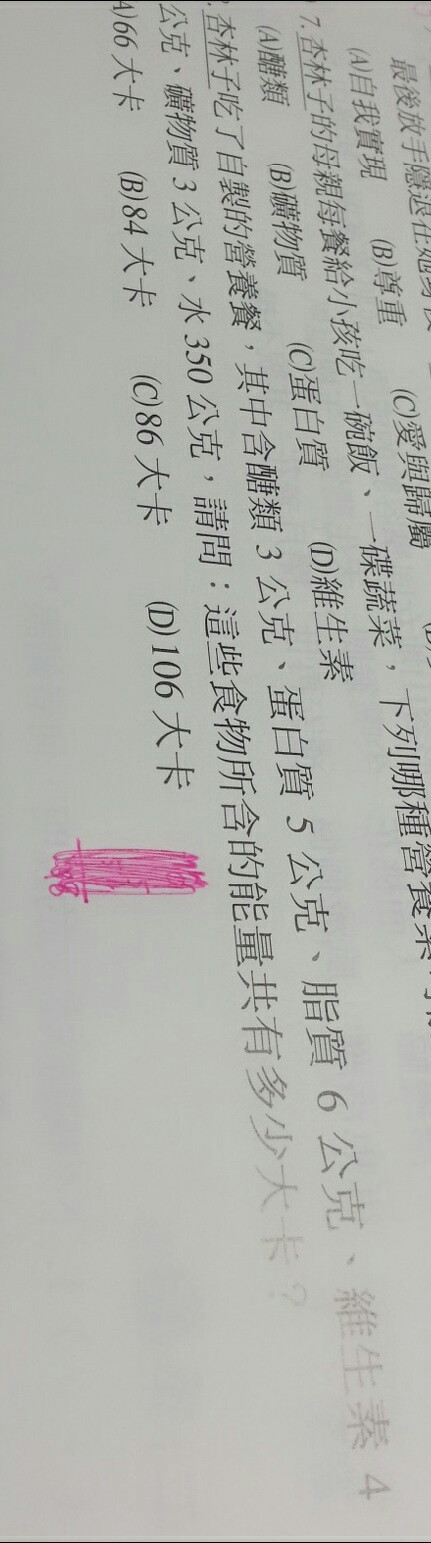 最後放手隱退在
(A)自我實現 (B)尊重 (C)愛與歸屬
7.杏林子的母親每餐給小孩吃一碗飯、一碟蔬菜，下列哪種營養素
(A)醣類 (B)礦物質 (C)蛋白質 (D)維生素
.杏林子吃了自製的營養餐，其中含醣類3公克、蛋白質5公克、脂質6公克、維生素4
公克、礦物質3公克、水350公克，請問：這些食物所含的能量共有多少大卡？
A)66大卡 (B)84大卡 (C)86大卡 (D)106大卡